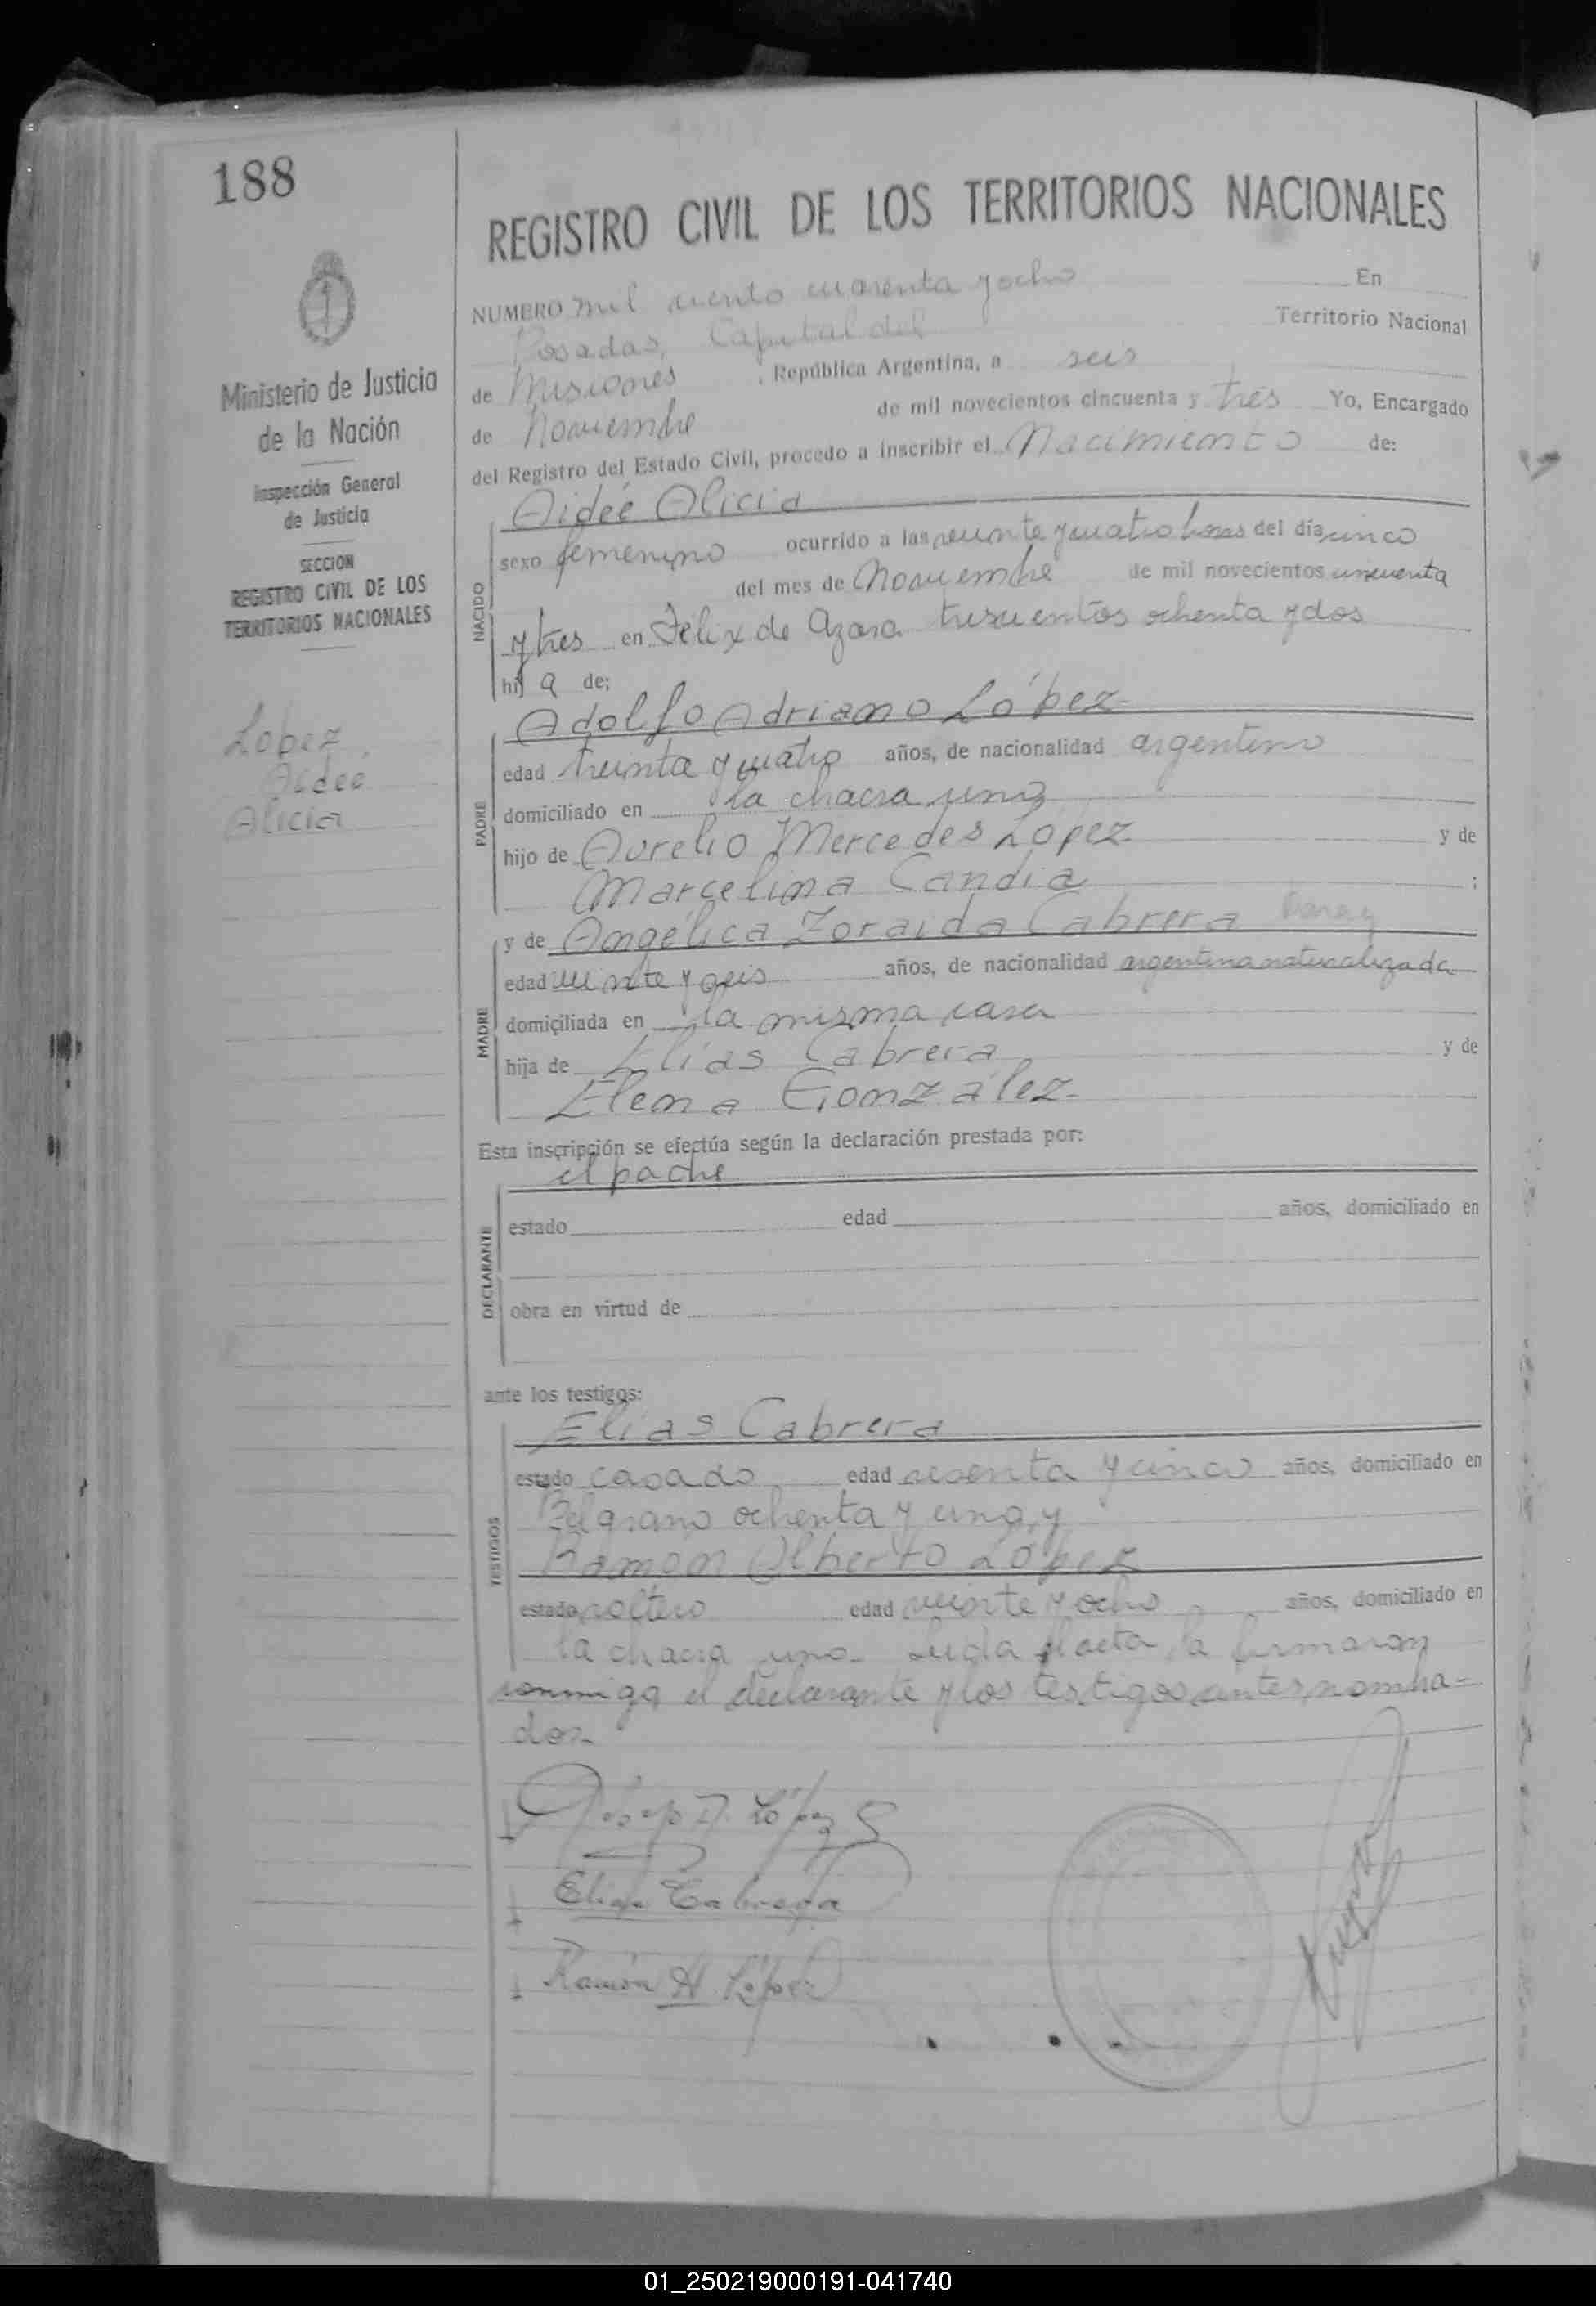 188
REGISTRO CIVIL DE LOS TERRITORIOS NACIONALES
Ministerio de Justicia
de la Nación
Inspección General
de Justicia
SECCION
REGISTRO CIVIL DE LOS
TERRITORIOS NACIONALES
Lopez
Aidée
Alicia
NUMERO mil ciento cuarenta y ocho En
Posadas, Capital del Territorio Nacional
de Misiones, República Argentina, a seis
de Noviembre de mil novecientos cincuenta y tres Yo, Encargado
del Registro del Estado Civil, procedo a inscribir el Nacimiento de:
NACIDO
Aidée Alicia
sexo femenino ocurrido a las veinte y cuatro horas del día cinco
del mes de Noviembre de mil novecientos cincuenta
y tres en Félix de Azara trescientos ochenta y dos
hija de;
PADRE
Adolfo Adriano López
edad treinta y cuatro años, de nacionalidad argentino
domiciliado en la chacra uno
hijo de Aurelio Mercedes López y de
Marcelina Candia ;
MADRE
y de Angélica Zoraida Cabrera
edad veinte y seis años, de nacionalidad argentina naturalizada
domiciliada en la misma casa
hija de Elías Cabrera y de
Elena González.
Esta inscripción se efectúa según la declaración prestada por:
el padre
DECLARANTE
estado edad años, domiciliado en
obra en virtud de
ante los testigos:
TESTIGOS
Elias Cabrera
estado casado edad sesenta y cinco años, domiciliado en
Belgrano ochenta y uno, y
Ramón Alberto López
estado soltero edad veinte y ocho años, domiciliado en
la chacra uno. Leída el acta, la firmaron
conmigo el declarante y los testigos antes nombra=
dos.
Adolfo A. López
Elias Cabrera
Ramón A. López
01_250219000191-041740